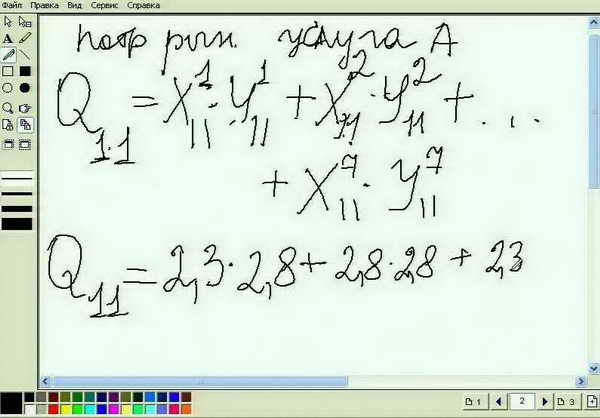 Файл Правка Вид Сервис Справка
потр рын. услуга А
Q₁.₁ = X¹₁₁ · Y¹₁₁ + X²₁₁ · Y²₁₁ + . . .
+ X⁷₁₁ · Y⁷₁₁
Q₁₁ = 2,3 · 2,8 + 2,8 · 2,8 + 2,3
1 2 3